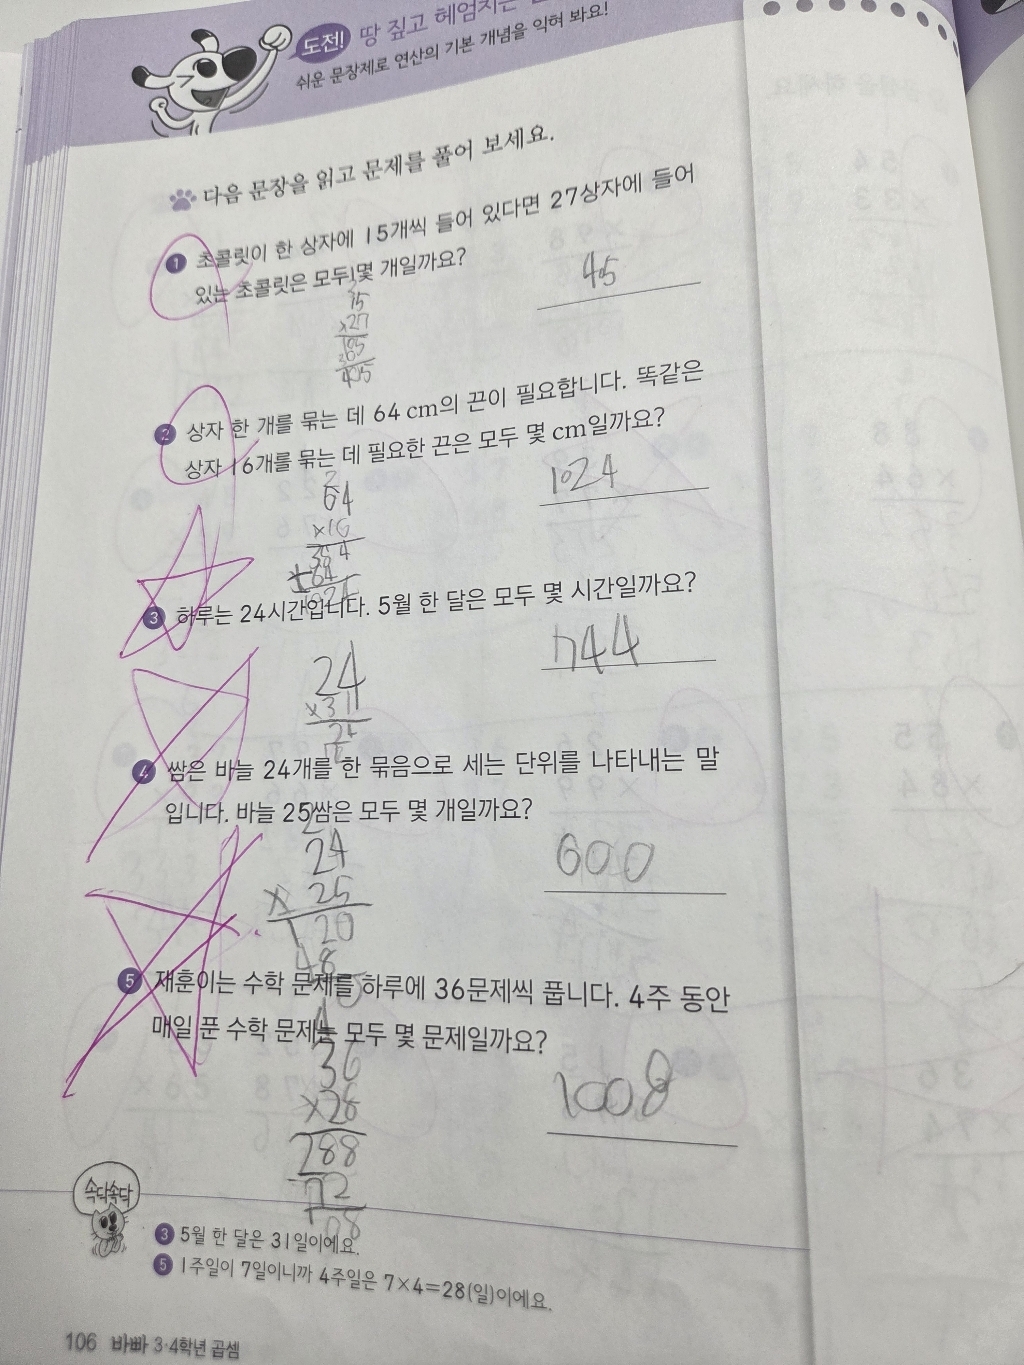 도전! 땅 짚고 헤엄치는
쉬운 문장제로 연산의 기본 개념을 익혀 봐요!
다음 문장을 읽고 문제를 풀어 보세요.
1 초콜릿이 한 상자에 15개씩 들어 있다면 27상자에 들어
있는 초콜릿은 모두 몇 개일까요?
405
15
×27
105
405
2 상자 한 개를 묶는 데 64 cm의 끈이 필요합니다. 똑같은
상자 16개를 묶는 데 필요한 끈은 모두 몇 cm일까요?
1024
2
64
×16
384
+64
1024
3 하루는 24시간입니다. 5월 한 달은 모두 몇 시간일까요?
744
24
×31
24
4 쌈은 바늘 24개를 한 묶음으로 세는 단위를 나타내는 말
입니다. 바늘 25쌈은 모두 몇 개일까요?
600
2
24
× 25
120
48
5 재훈이는 수학 문제를 하루에 36문제씩 풉니다. 4주 동안
매일 푼 수학 문제는 모두 몇 문제일까요?
1008
4
36
×28
288
72
속닥속닥
3 5월 한 달은 31일이에요.
5 1주일이 7일이니까 4주일은 7×4=28(일)이에요.
106 바빠 3·4학년 곱셈